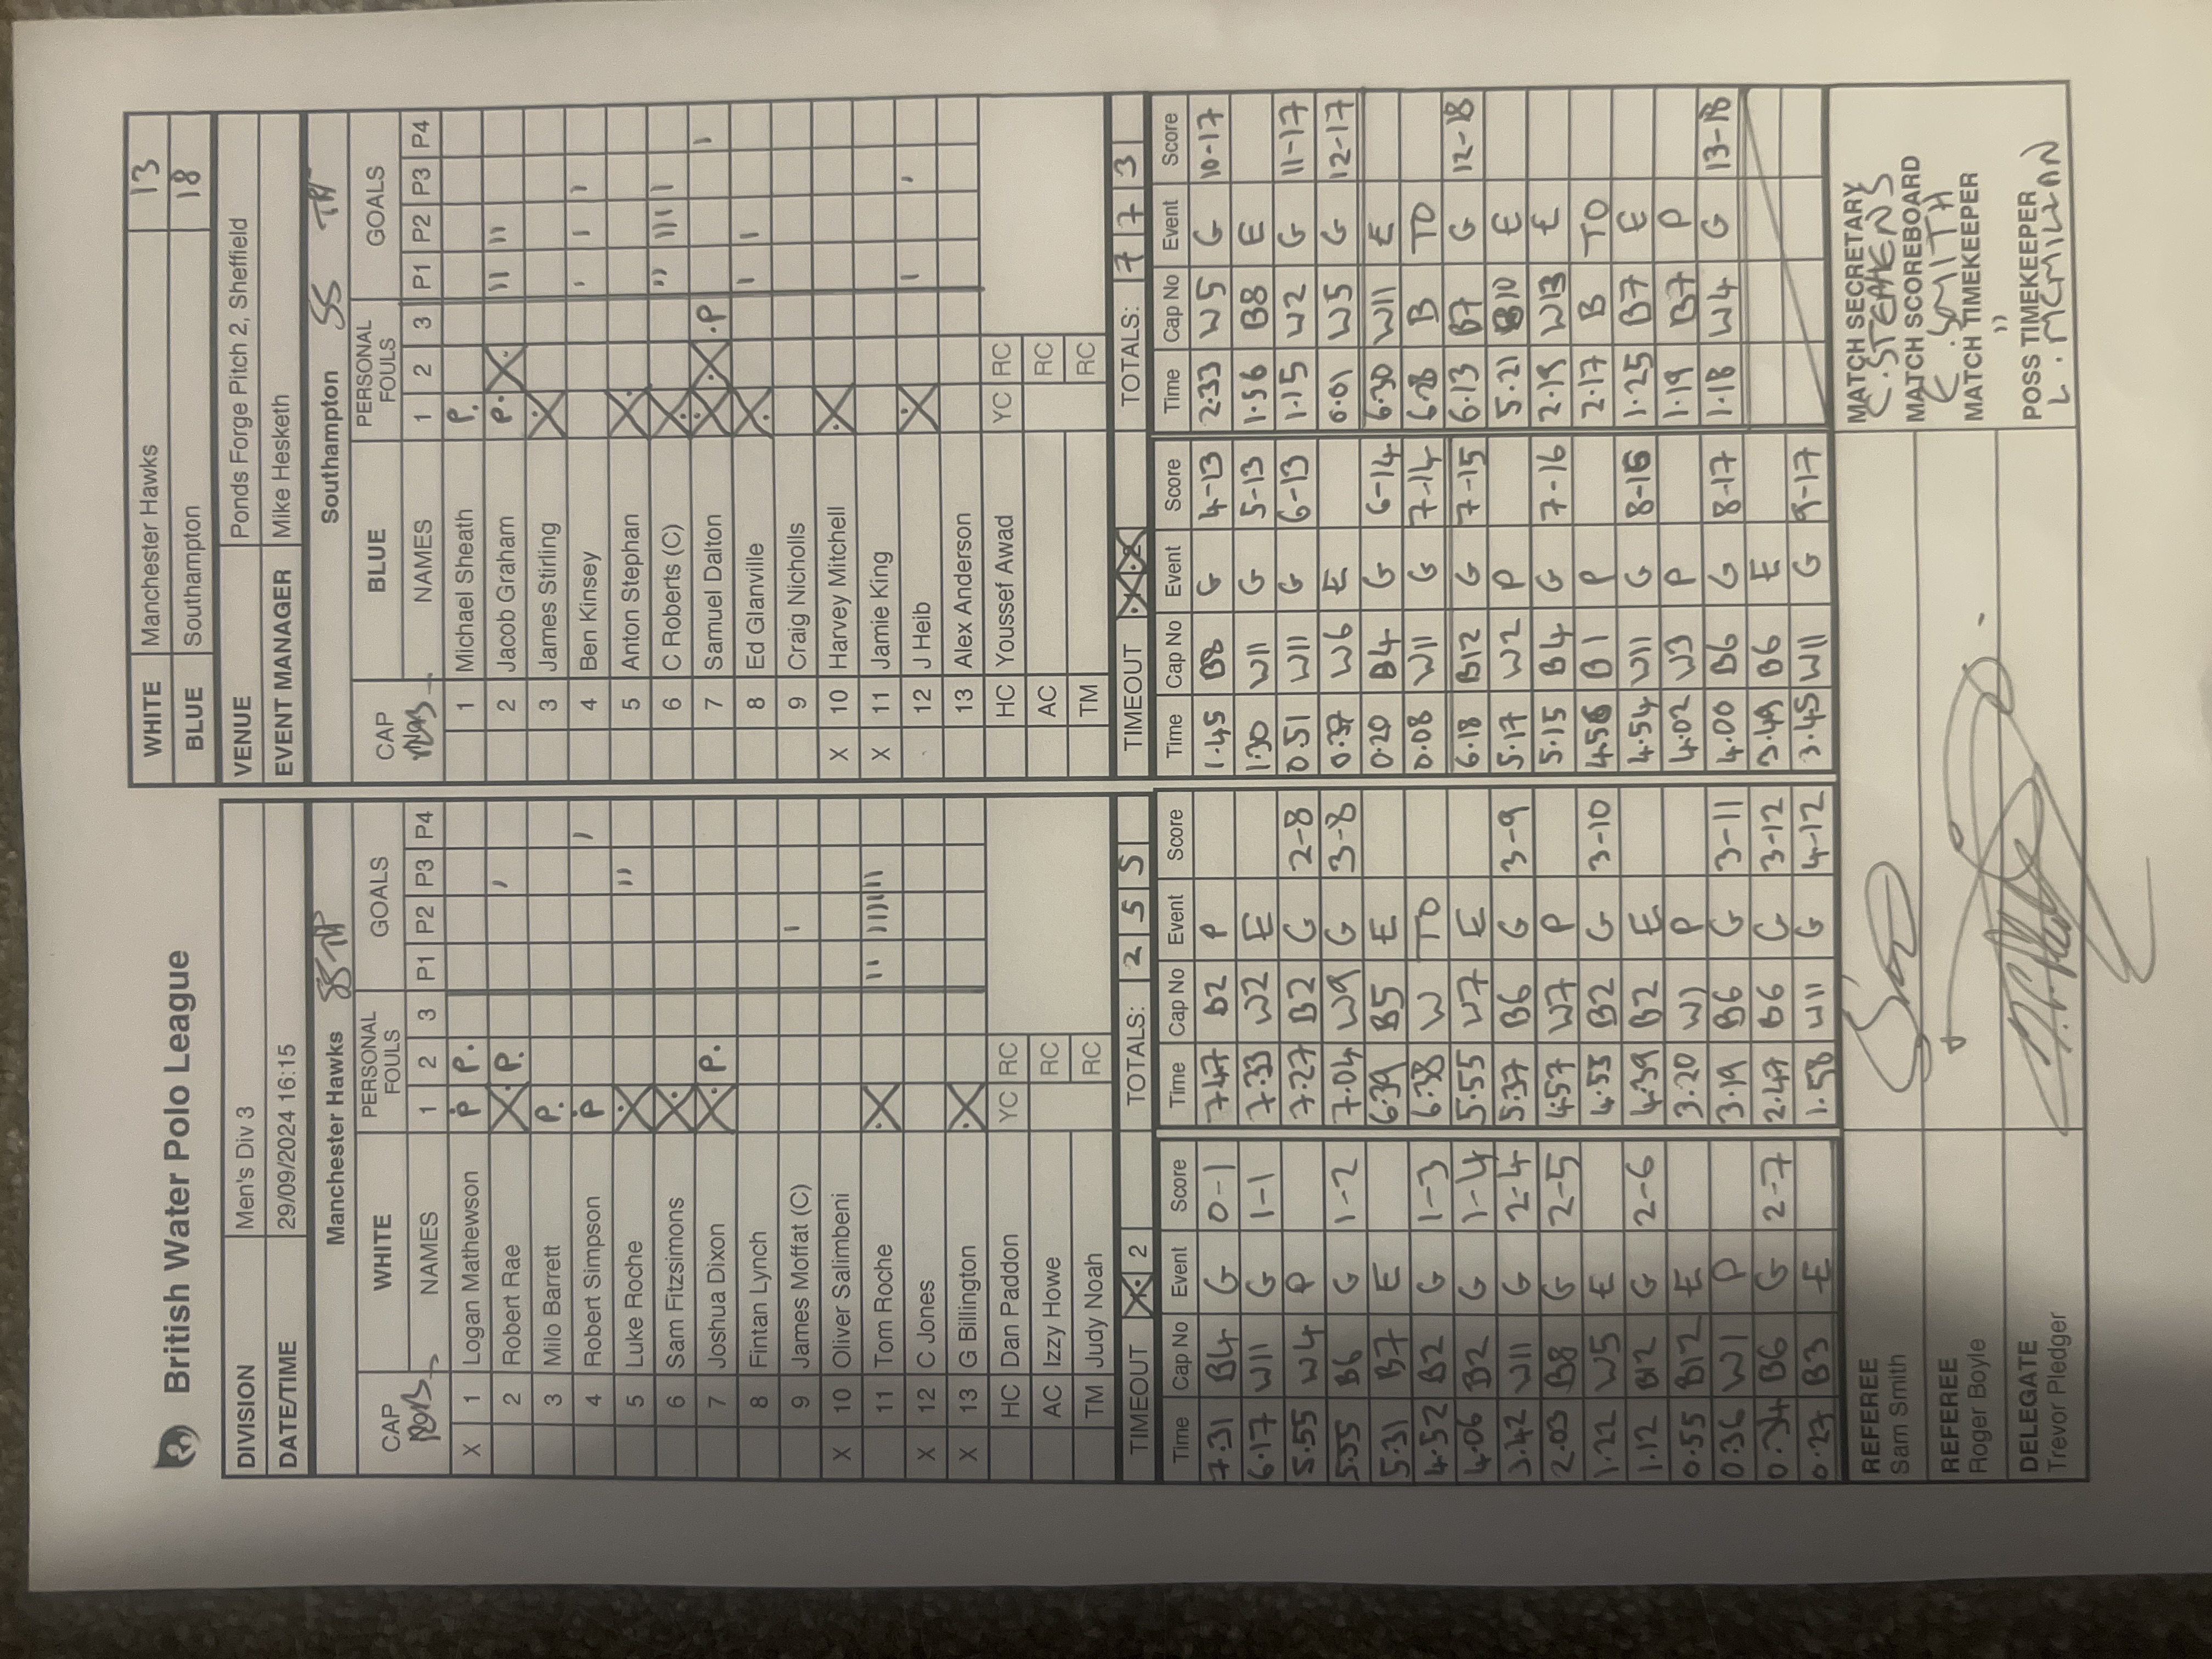 British Water Polo League
WHITE Manchester Hawks 13
BLUE Southampton 18
DIVISION Men's Div 3
DATE/TIME 29/09/2024 16:15
VENUE Ponds Forge Pitch 2, Sheffield
EVENT MANAGER Mike Hesketh
Manchester Hawks SS TP
CAP WHITE PERSONAL FOULS GOALS
NAMES 1 2 3 P1 P2 P3 P4
X 1 Logan Mathewson P P.
2 Robert Rae X P. I
3 Milo Barrett P.
4 Robert Simpson P I
5 Luke Roche X II
6 Sam Fitzsimons X
7 Joshua Dixon X P.
8 Fintan Lynch
9 James Moffat (C) I
X 10 Oliver Salimbeni
11 Tom Roche X II IIII II
X 12 C Jones
X 13 G Billington X
HC Dan Paddon YC RC
AC Izzy Howe RC
TM Judy Noah RC
TIMEOUT X 2 TOTALS: 2 5 5
Southampton SS TP
CAP BLUE PERSONAL FOULS GOALS
NAMES 1 2 3 P1 P2 P3 P4
1 Michael Sheath P.
2 Jacob Graham P. X II II
3 James Stirling X
4 Ben Kinsey I I I
5 Anton Stephan X
6 C Roberts (C) X II III I
7 Samuel Dalton X X .P I
8 Ed Glanville X I I
9 Craig Nicholls
X 10 Harvey Mitchell X
X 11 Jamie King
12 J Heib X I I
13 Alex Anderson
HC Youssef Awad YC RC
AC RC
TM RC
TIMEOUT X X TOTALS: 7 7 3
Time Cap No Event Score
7.31 B4 G 0-1
6.17 W11 G 1-1
5.55 W4 P
5.55 B6 G 1-2
5.31 B7 E
4.52 B2 G 1-3
4.06 B2 G 1-4
3.42 W11 G 2-4
2.03 B8 G 2-5
1.22 W5 E
1.12 B12 G 2-6
0.55 B12 E
0.36 W1 P
0.34 B6 G 2-7
0.27 B3 E
Time Cap No Event Score
7.47 B2 P
7.33 W2 E
7.27 B2 G 2-8
7.04 W9 G 3-8
6.39 B5 E
6.38 W TO
5.55 W7 E
5.37 B6 G 3-9
4.57 W7 P
4.53 B2 G 3-10
4.39 B2 E
3.20 W1 P
3.19 B6 G 3-11
2.47 B6 G 3-12
1.58 W11 G 4-12
Time Cap No Event Score
1.45 B8 G 4-13
1.30 W11 G 5-13
0.51 W11 G 6-13
0.37 W6 E
0.20 B4 G 6-14
0.08 W11 G 7-14
6.18 B12 G 7-15
5.17 W2 P
5.15 B4 G 7-16
4.56 B1 P
4.54 W11 G 8-16
4.02 W3 P
4.00 B6 G 8-17
3.49 B6 E
3.45 W11 G 9-17
Time Cap No Event Score
2.33 W5 G 10-17
1.56 B8 E
1.15 W2 G 11-17
0.01 W5 G 12-17
6.30 W11 E
6.28 B TO
6.13 B7 G 12-18
5.21 B10 E
2.19 W13 E
2.17 B TO
1.25 B7 E
1.19 B7 P
1.18 W4 G 13-18
REFEREE
Sam Smith
REFEREE
Roger Boyle
DELEGATE
Trevor Pledger
MATCH SECRETARY
C. STEPHENS
MATCH SCOREBOARD
C. SMITH
MATCH TIMEKEEPER
"
POSS TIMEKEEPER
L. MCMILLAN